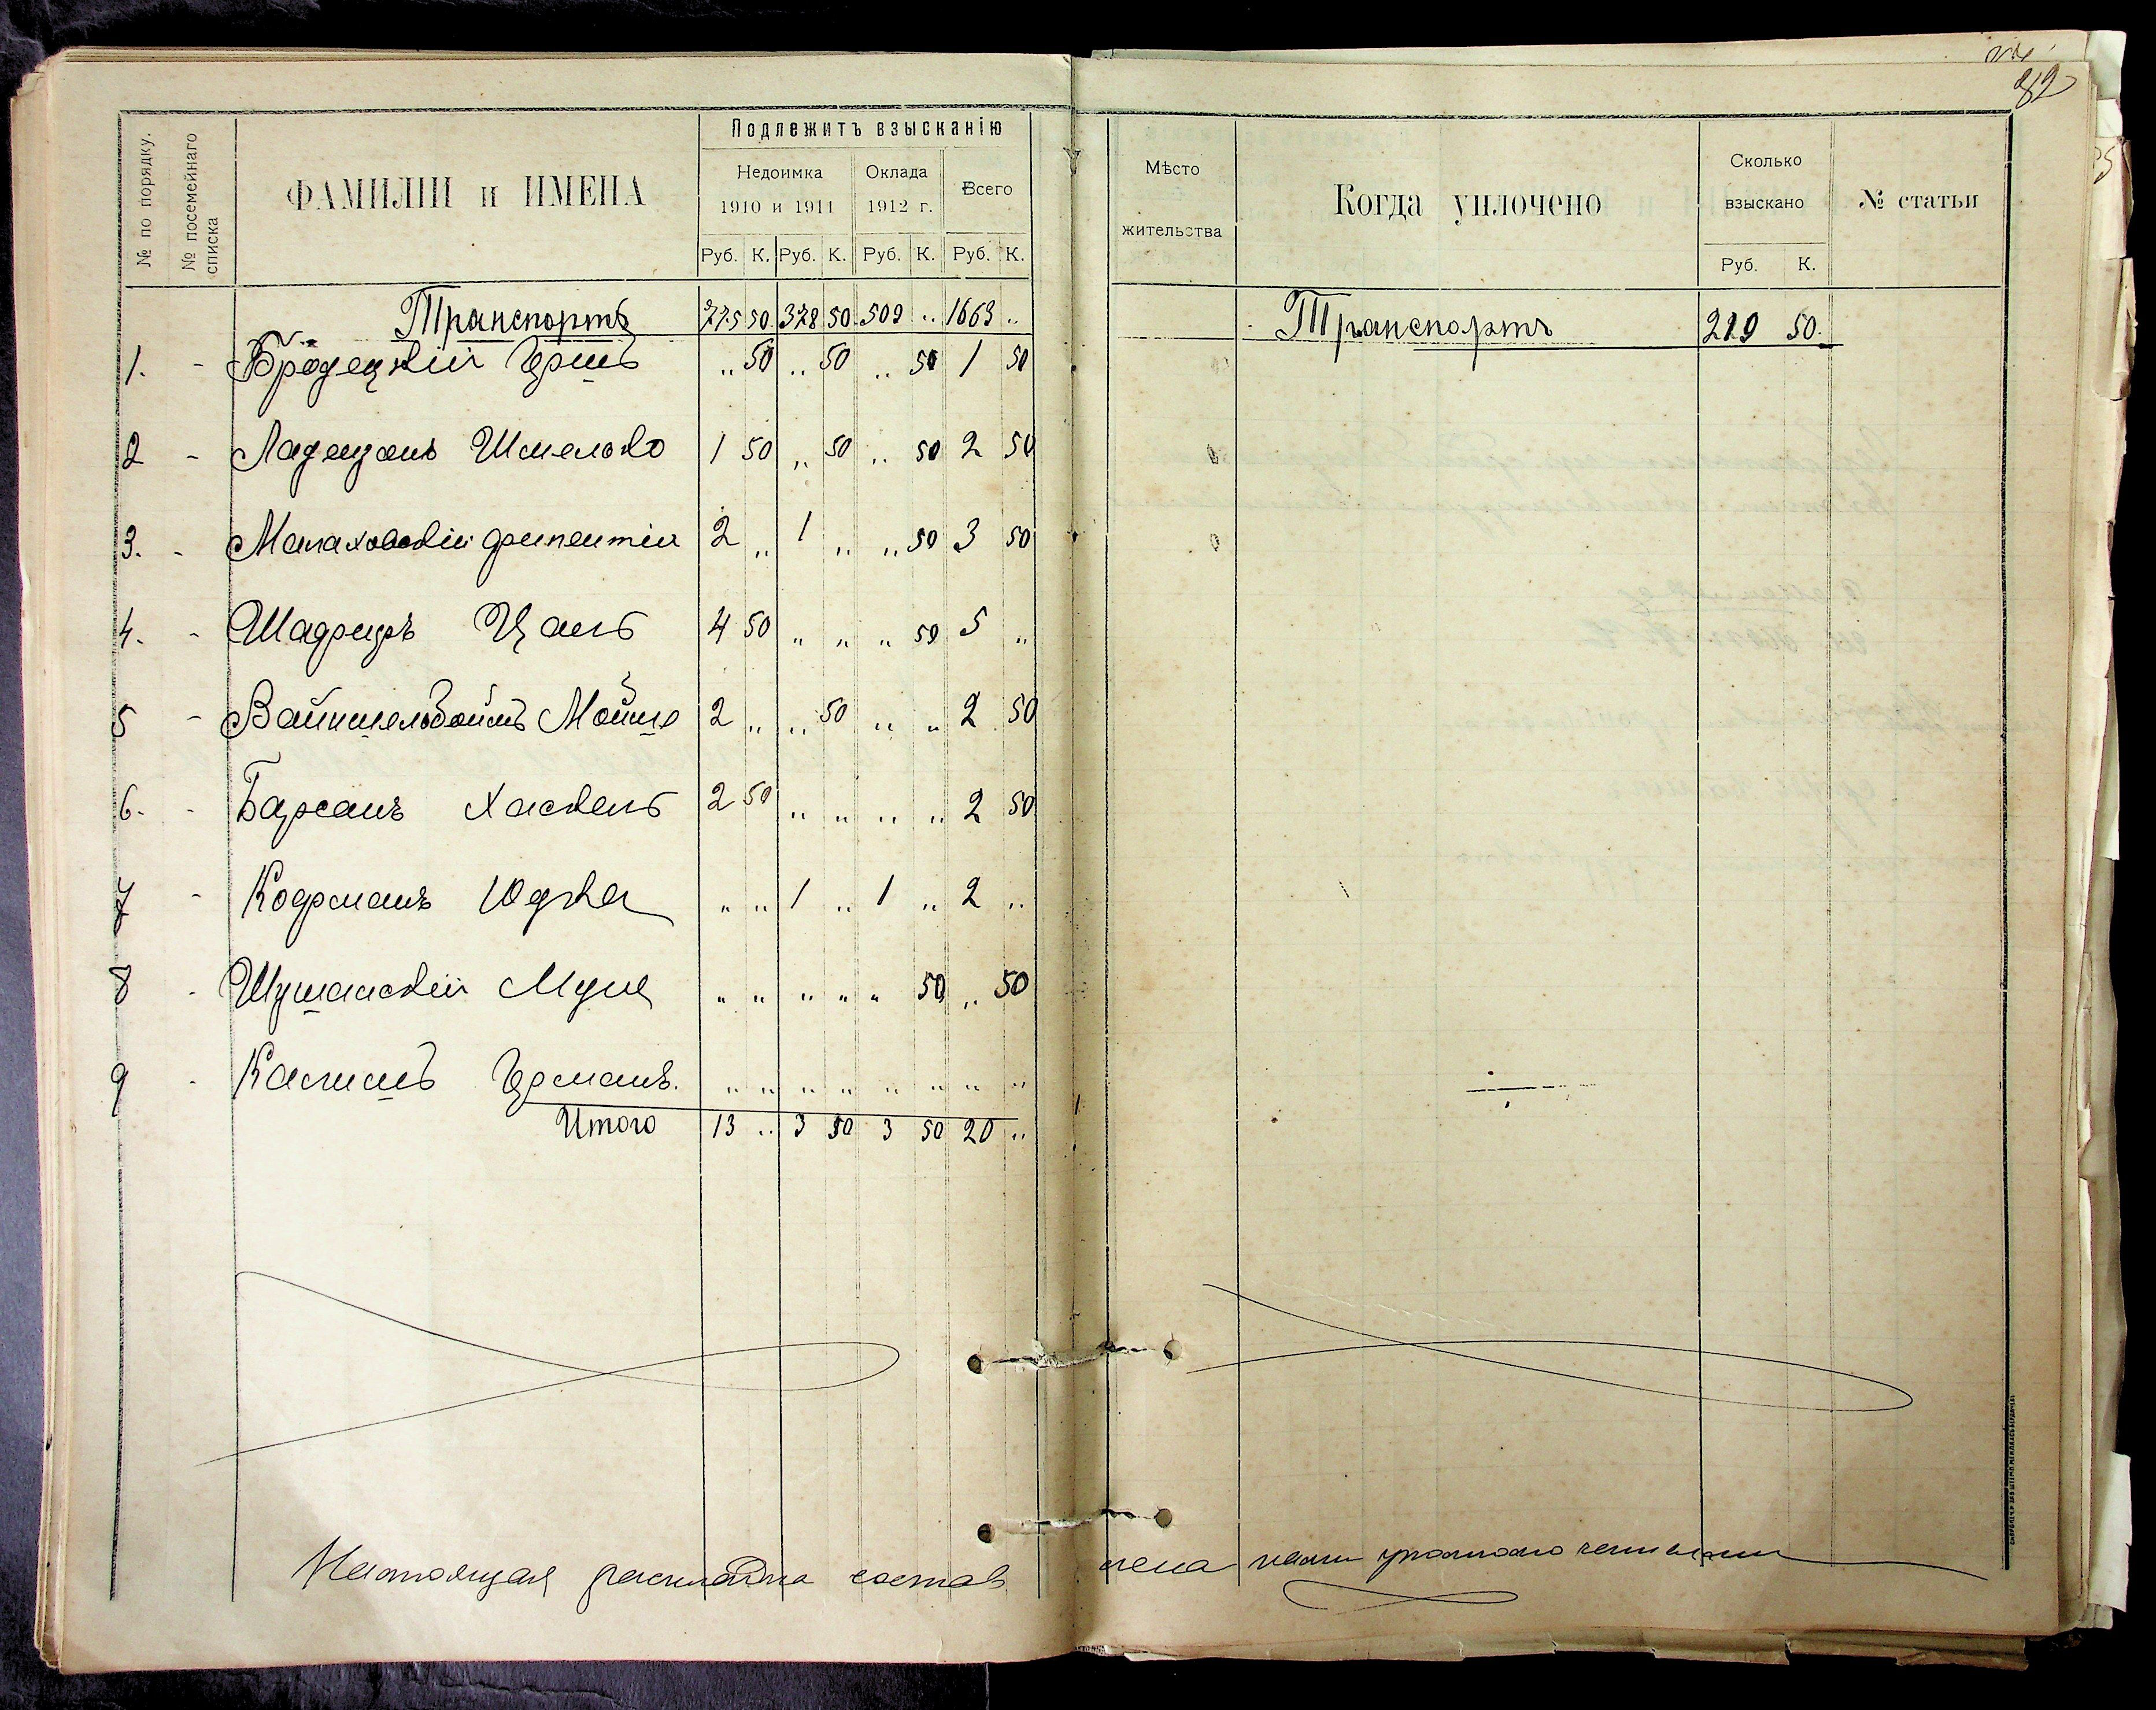 82
№ по порядку.
№ посемейнаго списка
ФАМИЛІИ и ИМЕНА
Подлежитъ взысканію
Недоимка
1910 и 1911
Оклада
1912 г.
Всего
Руб. К. Руб. К. Руб. К. Руб. К.
Мѣсто
жительства
Когда уплочено
Сколько
взыскано
Руб. К.
№ статьи
Транспортъ 775 50 378 50 509 „ 1663 „
Транспортъ 219 50.
1. - Бродецкій Гершъ „ 50 „ 50 „ 50 1 50
2 - Ладыжанъ Шмелько 1 50 „ 50 „ 50 2 50
3. - Малаховскій 2 „ 1 „ „ 50 3 50
4. - Шадриръ Цаль 4 50 „ „ „ 50 5 „
5 - Вайншельбоймъ Мойше 2 „ „ 50 „ „ 2 50
6. - Барсанъ Хаскель 2 50 „ „ „ „ 2 50
7 - Кофманъ Юдка „ „ 1 „ 1 „ 2 „
8 - Шушанскій Муне „ „ „ „ „ 50 „ 50
9 - Германъ. „ „ „ „ „ „ „ „
Итого 13 „ 3 50 3 50 20 „
Настоящая раскладка составлена нами